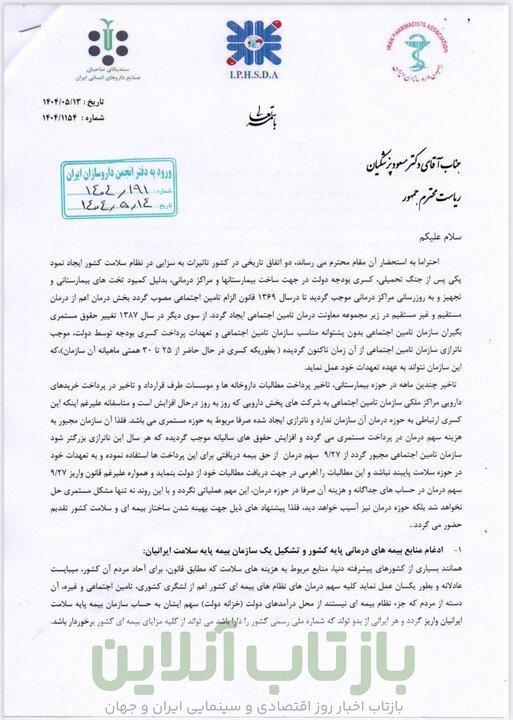 سندیکای صاحبان
صنایع داروهای انسانی ایران
I.P.H.S.D.A
IRAN PHARMACISTS ASSOCIATION
انجمن داروسازان ایران
تاریخ : ۱۴۰۴/۰۵/۱۳
شماره : ۱۴۰۴/۱۱۵۴
باسمه تعالی
جناب آقای دکتر مسعود پزشکیان
ریاست محترم جمهور
ورود به دفتر انجمن داروسازان ایران
شماره: ۱۴۰۴/۱۹۱
تاریخ: ۱۴۰۴/۵/۱۴
سلام علیکم
احتراما به استحضار آن مقام محترم می رساند، دو اتفاق تاریخی در کشور تاثیرات به سزایی در نظام سلامت کشور ایجاد نمود
یکی پس از جنگ تحمیلی، کسری بودجه دولت در جهت ساخت بیمارستانها و مراکز درمانی، بدلیل کمبود تخت های بیمارستانی و
تجهیز و به روزرسانی مراکز درمانی، موجب گردید تا درسال ۱۳۶۹ قانون الزام تامین اجتماعی مصوب گردد بخش درمان اعم از درمان
مستقیم و غیر مستقیم در زیر مجموعه معاونت درمان تامین اجتماعی ایجاد گردد. از سوی دیگر در سال ۱۳۸۷ تغییر حقوق مستمری
بگیران سازمان تامین اجتماعی بدون پشتوانه مناسب سازمان تامین اجتماعی و تعهدات پرداخت کسری بودجه توسط دولت، موجب
ناترازی سازمان تامین اجتماعی از آن زمان تاکنون گردیده ( بطوریکه کسری در حال حاضر از ۲۵ تا ۳۰ همتی ماهیانه آن سازمان)،که
این سازمان نتواند به عهده تعهدات خود عمل نماید.
تاخیر چندین ماهه در حوزه بیمارستانی، تاخیر پرداخت مطالبات داروخانه ها و موسسات طرف قرارداد و تاخیر در پرداخت خریدهای
دارویی مراکز ملکی سازمان تامین اجتماعی به شرکت های پخش دارویی که روز به روز درحال افزایش است و متاسفانه علیرغم اینکه این
کسری ارتباطی به حوزه درمان آن سازمان ندارد و ناترازی ایجاد شده صرفا مربوط به حوزه مستمری می باشد. فلذا آن سازمان مجبور به
هزینه سهم درمان در پرداخت مستمری می گردد و افزایش حقوق های سالیانه موجب گردیده که هر سال این ناترازی بزرگتر شود
سازمان تامین اجتماعی مجبور گردد از ۹/۲۷ سهم درمان از حق بیمه دریافتی برای این پرداخت ها استفاده نموده و به تعهدات خود
در حوزه سلامت پایبند نباشد و این مطالبات را اهرمی در جهت دریافت مطالبات خود از دولت بنماید و همواره علیرغم قانون واریز ۹/۲۷
سهم درمان در حساب های جداگانه و هزینه آن صرفا در حوزه درمان، این مهم عملیاتی نگردد و با این روند نه تنها مشکل مستمری حل
نخواهد شد بلکه حوزه درمان نیز آسیب خواهد دید، فلذا پیشنهاد های ذیل جهت بهینه شدن ساختار بیمه ای و سلامت کشور تقدیم
حضور می گردد..
۱- ادغام منابع بیمه های درمانی پایه کشور و تشکیل یک سازمان بیمه پایه سلامت ایرانیان:
همانند بسیاری از کشورهای پیشرفته دنیا، منابع مربوط به هزینه های سلامت که مطابق قانون، برای آحاد مردم آن کشور، میبایست
عادلانه و بطور یکسان عمل نماید کلیه سهم درمان های نظام های بیمه ای کشور اعم از لشگری کشوری، تامین اجتماعی و غیره، آن
دسته از مردم که جزء نظام بیمه ای نیستند از محل درآمدهای دولت (خزانه دولت) سهم ایشان به حساب سازمان بیمه پایه سلامت
ایرانیان واریز گردد و هر ایرانی از بدو تولد که شماره ملی رسمی کشور را دارا باشد می تواند از کلیه مزایای بیمه ای کشور برخوردار باشد.
بازتاب آنلاین
بازتاب اخبار روز اقتصادی و سینمایی ایران و جهان